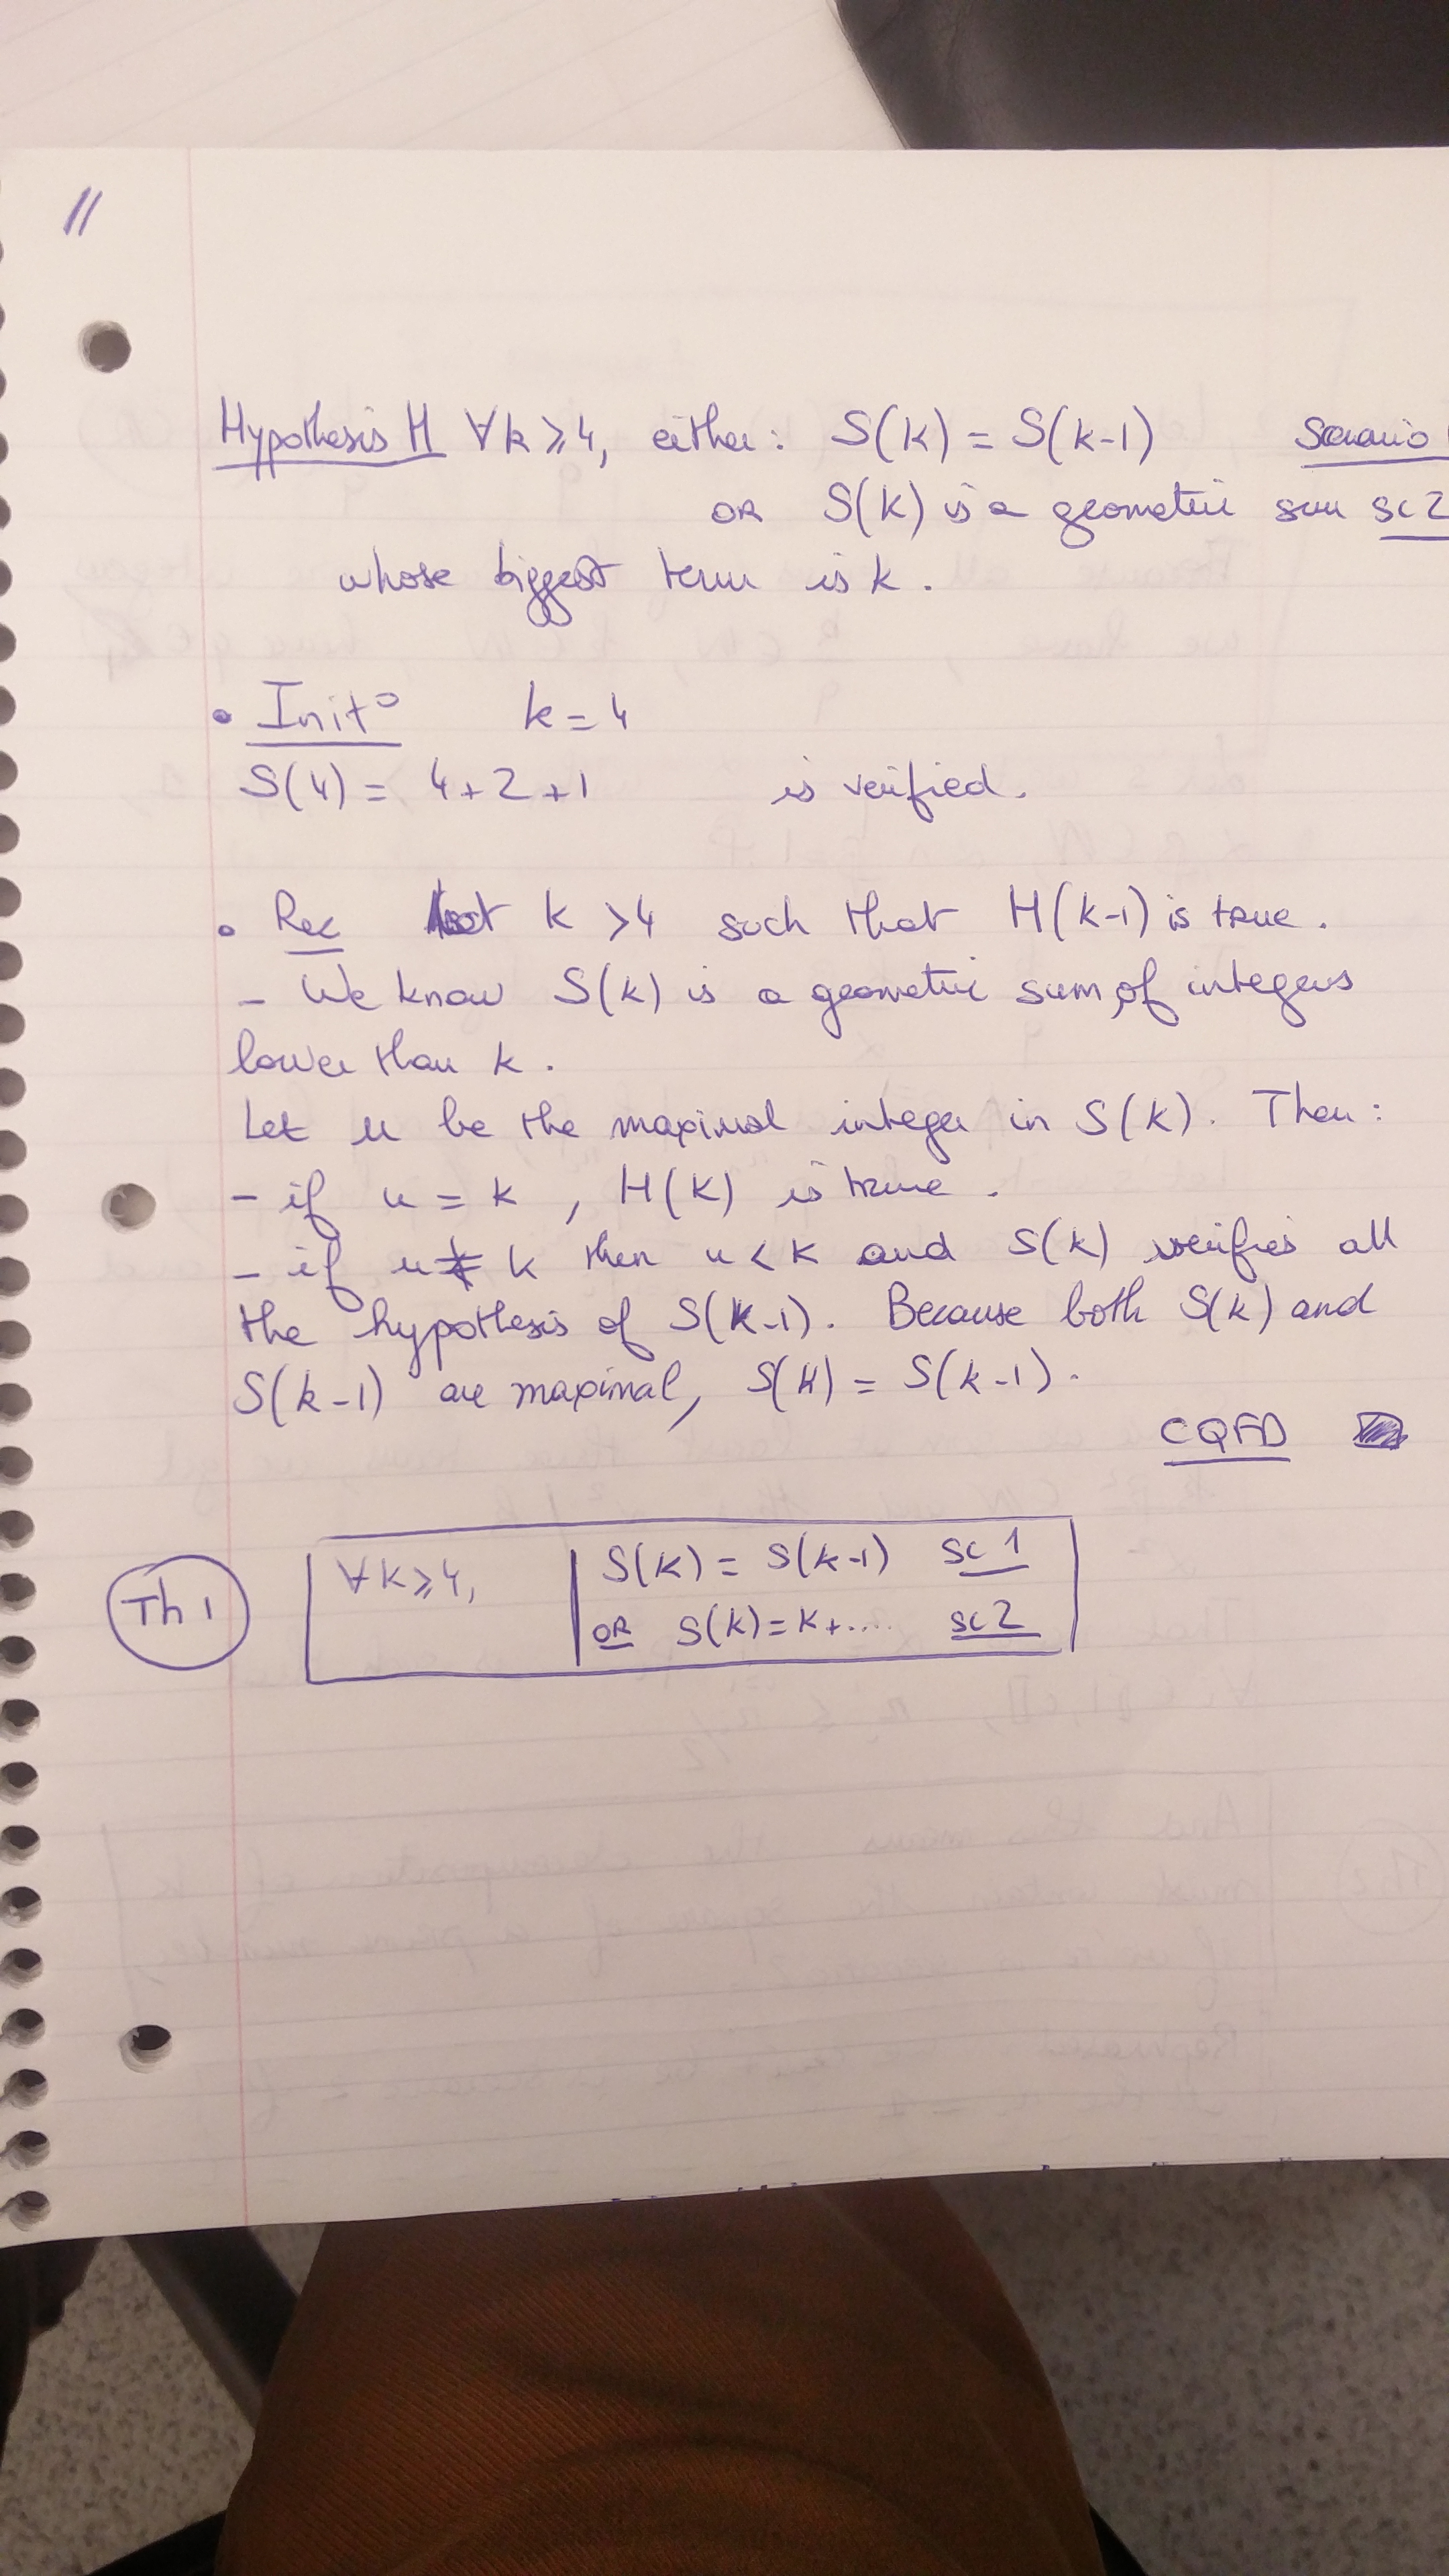 11
Hypothesis H ∀k⩾4, either: S(k) = S(k-1) Scenario
OR S(k) is a geometric sum sc2
whose biggest term is k.
• Init° k=4
S(4) = 4+2+1 is verified.
• Rec Let k >4 such that H(k-1) is true.
- We know S(k) is a geometric sum of integers
lower than k.
Let u be the maximal integer in S(k). Then:
- if u = k, H(k) is true.
- if u ≠ k then u < k and S(k) verifies all
the hypothesis of S(k-1). Because both S(k) and
S(k-1) are maximal, S(k) = S(k-1).
CQFD
Th 1 ∀k⩾4, S(k) = S(k-1) sc 1
OR S(k)=k+.... sc2